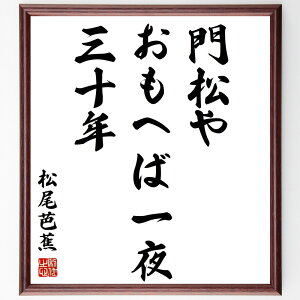 門松や
おもへば一夜
三十年
松尾芭蕉